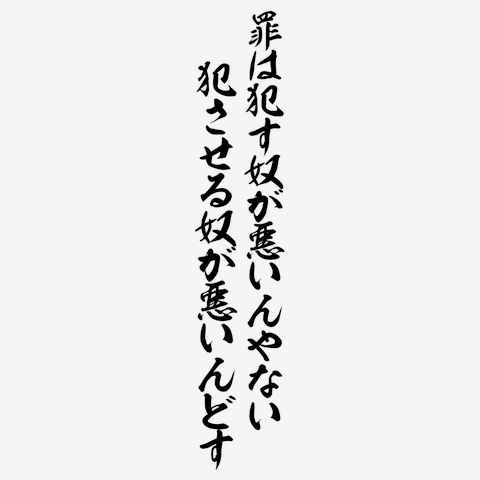 罪は犯す奴が悪いんやない
犯させる奴が悪いんどす